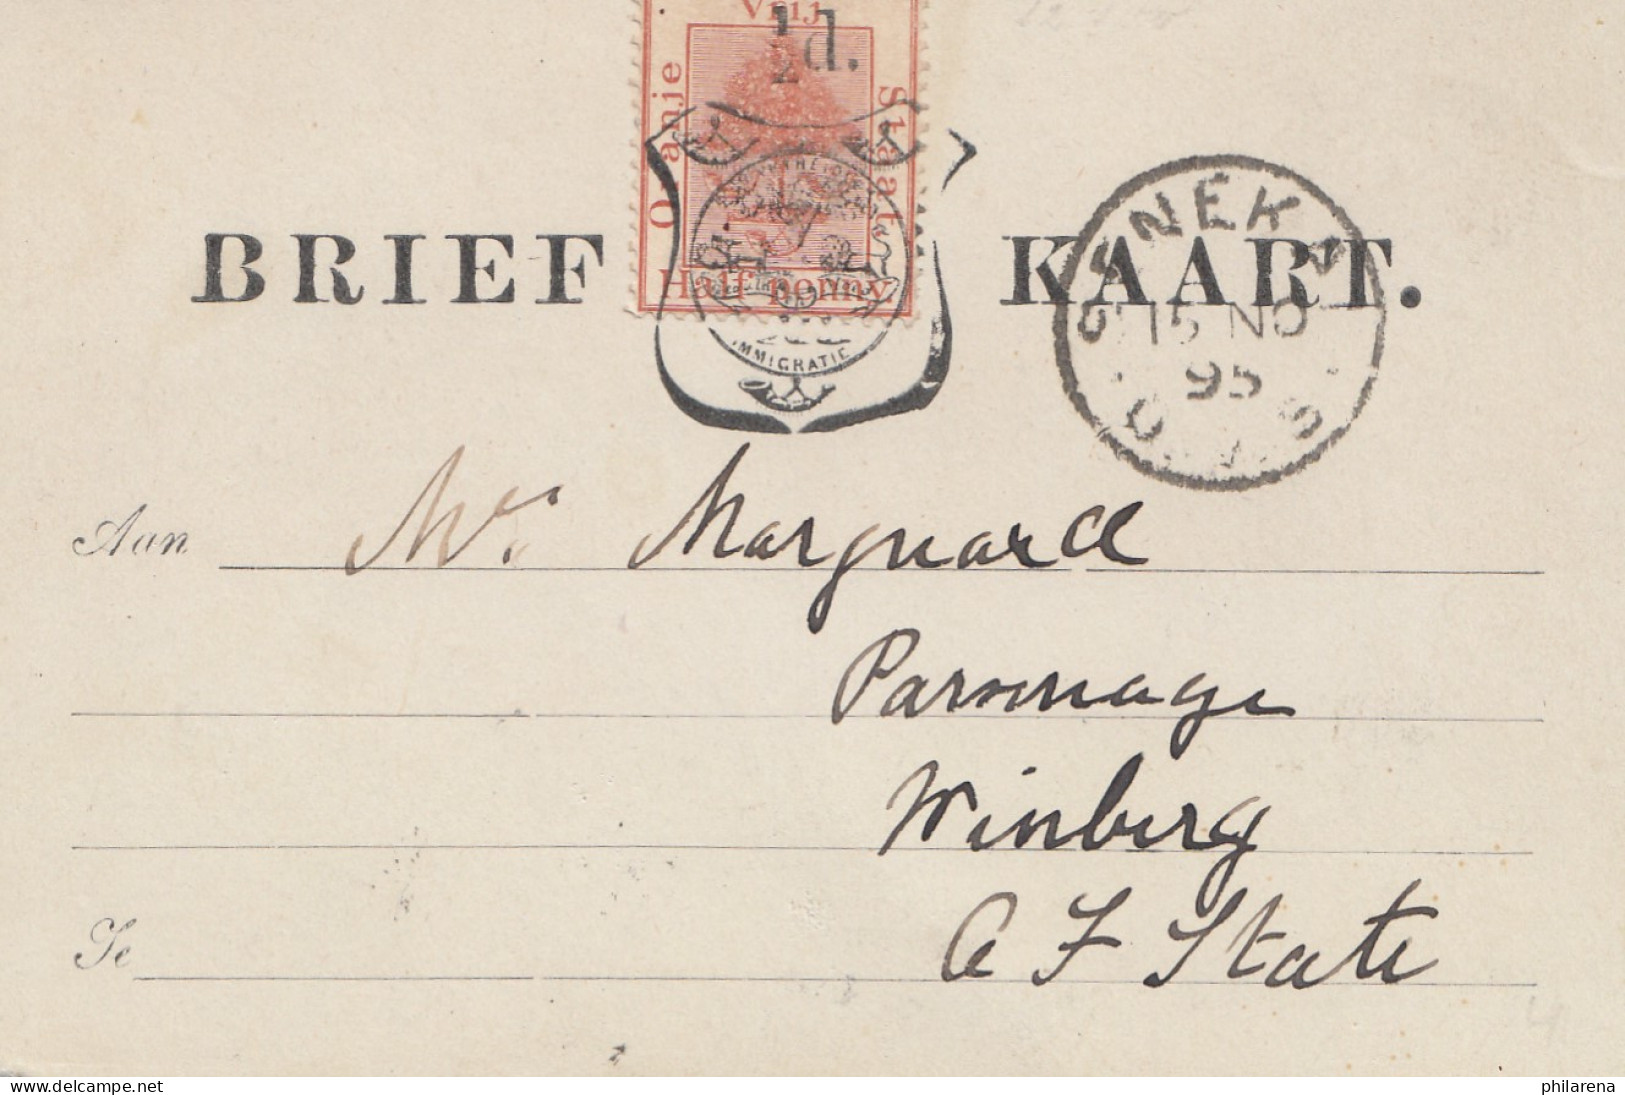 Vrij
½d.
Oranje
Staat
Half penny.
IMMIGRATIE
BRIEF KAART.
SENEKAL
15 NO
95
O.V.S.
Aan Mr. Marquard
Parsonage
Winburg
O F State
Te
www.delcampe.net
philarena